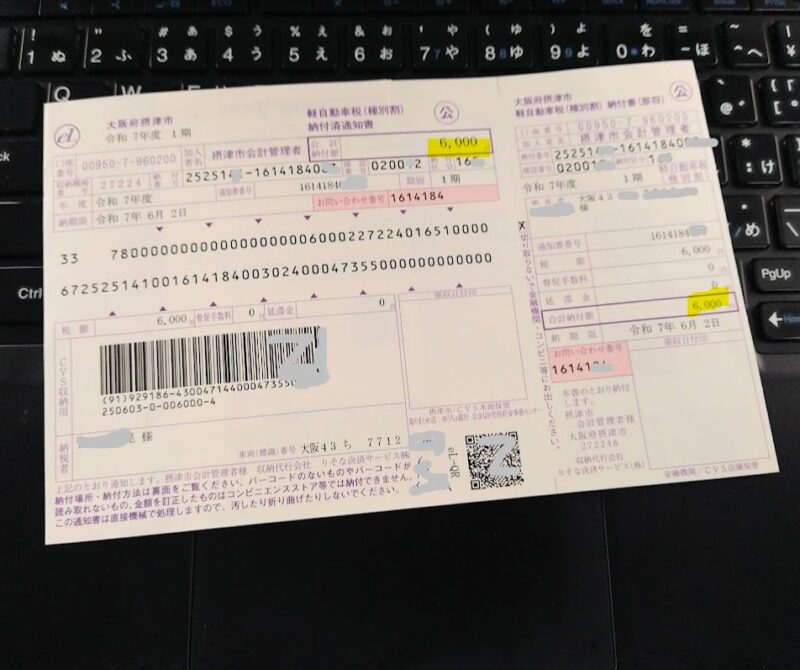 大阪府摂津市
令和 7年度 1期
軽自動車税(種別割)
納付済通知書
公
合計納付額 6,000円
口座番号 00950-7-960200 加入者名 摂津市会計管理者
27224 252514 -161418400 0200.2 16
年度 令和 7年度 通知書番号 1614184 期別 1期
納期限 令和 7年 6月 2日 お問い合わせ番号 1614184
33 780000000000000000006000227224016510000
67252514100161418400302400047355000000000000
税額 6,000円 督促手数料 0円 延滞金 0円
領収日付印
CVS収納用
(91)929186-4300471440004735500
250603-0-006000-4
摂津市/CVS本部保管
納税者 様
車両(標識)番号 大阪43 ち 7712
eL-QR
上記のとおり通知します。摂津市会計管理者様 収納代行会社 りそな決済サービス(株)
納付場所・納付方法は裏面をご覧ください。バーコードのないものやバーコードが
読み取れないもの、金額を訂正したものはコンビニエンスストア等では納付できません。
この通知書は直接機械で処理しますので、汚したり折り曲げたりしないでください。
切り取らないで金融機関・コンビニ等にお出しください。
大阪府摂津市
軽自動車税(種別割) 納付書(原符)
公
口座番号 00950-7-960200
加入者名 摂津市会計管理者
納付番号 252514 -161418400
確認番号 02001 納付区分 1
令和 7年度 1期 軽自動車税(種別割)
大阪 43
様
通知書番号 1614184
税額 6,000
督促手数料 0
延滞金 0
合計納付額 6,000
納期限 令和 7年 6月 2日
お問い合わせ番号
16141
領収日付印
本書のとおり納付
します。
摂津市
会計管理者様
大阪府摂津市
272248
収納代行会社
りそな決済サービス(株)
金融機関/CVS店舗保管